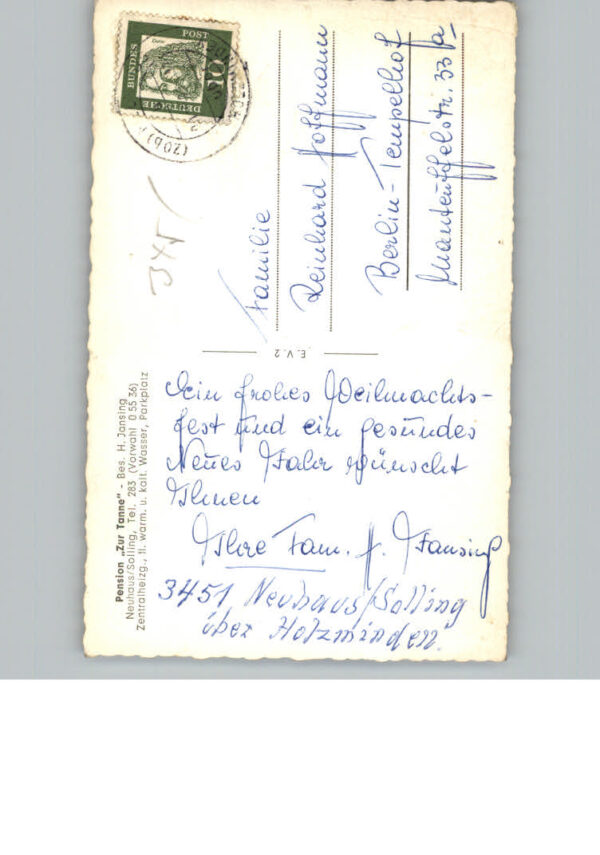 Pension „Zur Tanne" - Bes. H. Jansing
Neuhaus/Solling, Tel. 283 (Vorwahl 0 55 36)
Zentralheizg., fl. warm. u. kalt. Wasser, Parkplatz
Ein frohes Weihnachts-
fest und ein gesundes
Neues Jahr wünscht
Ihnen
Ihre Fam. H. Jansing
3451 Neuhaus/Solling
über Holzminden.
E. V. 2
Familie
Reinhard Hoffmann
Berlin-Tempelhof
Manteuffelstr. 33 a
DEUTSCHE
BUNDES
POST
10
Dürer
(20b)